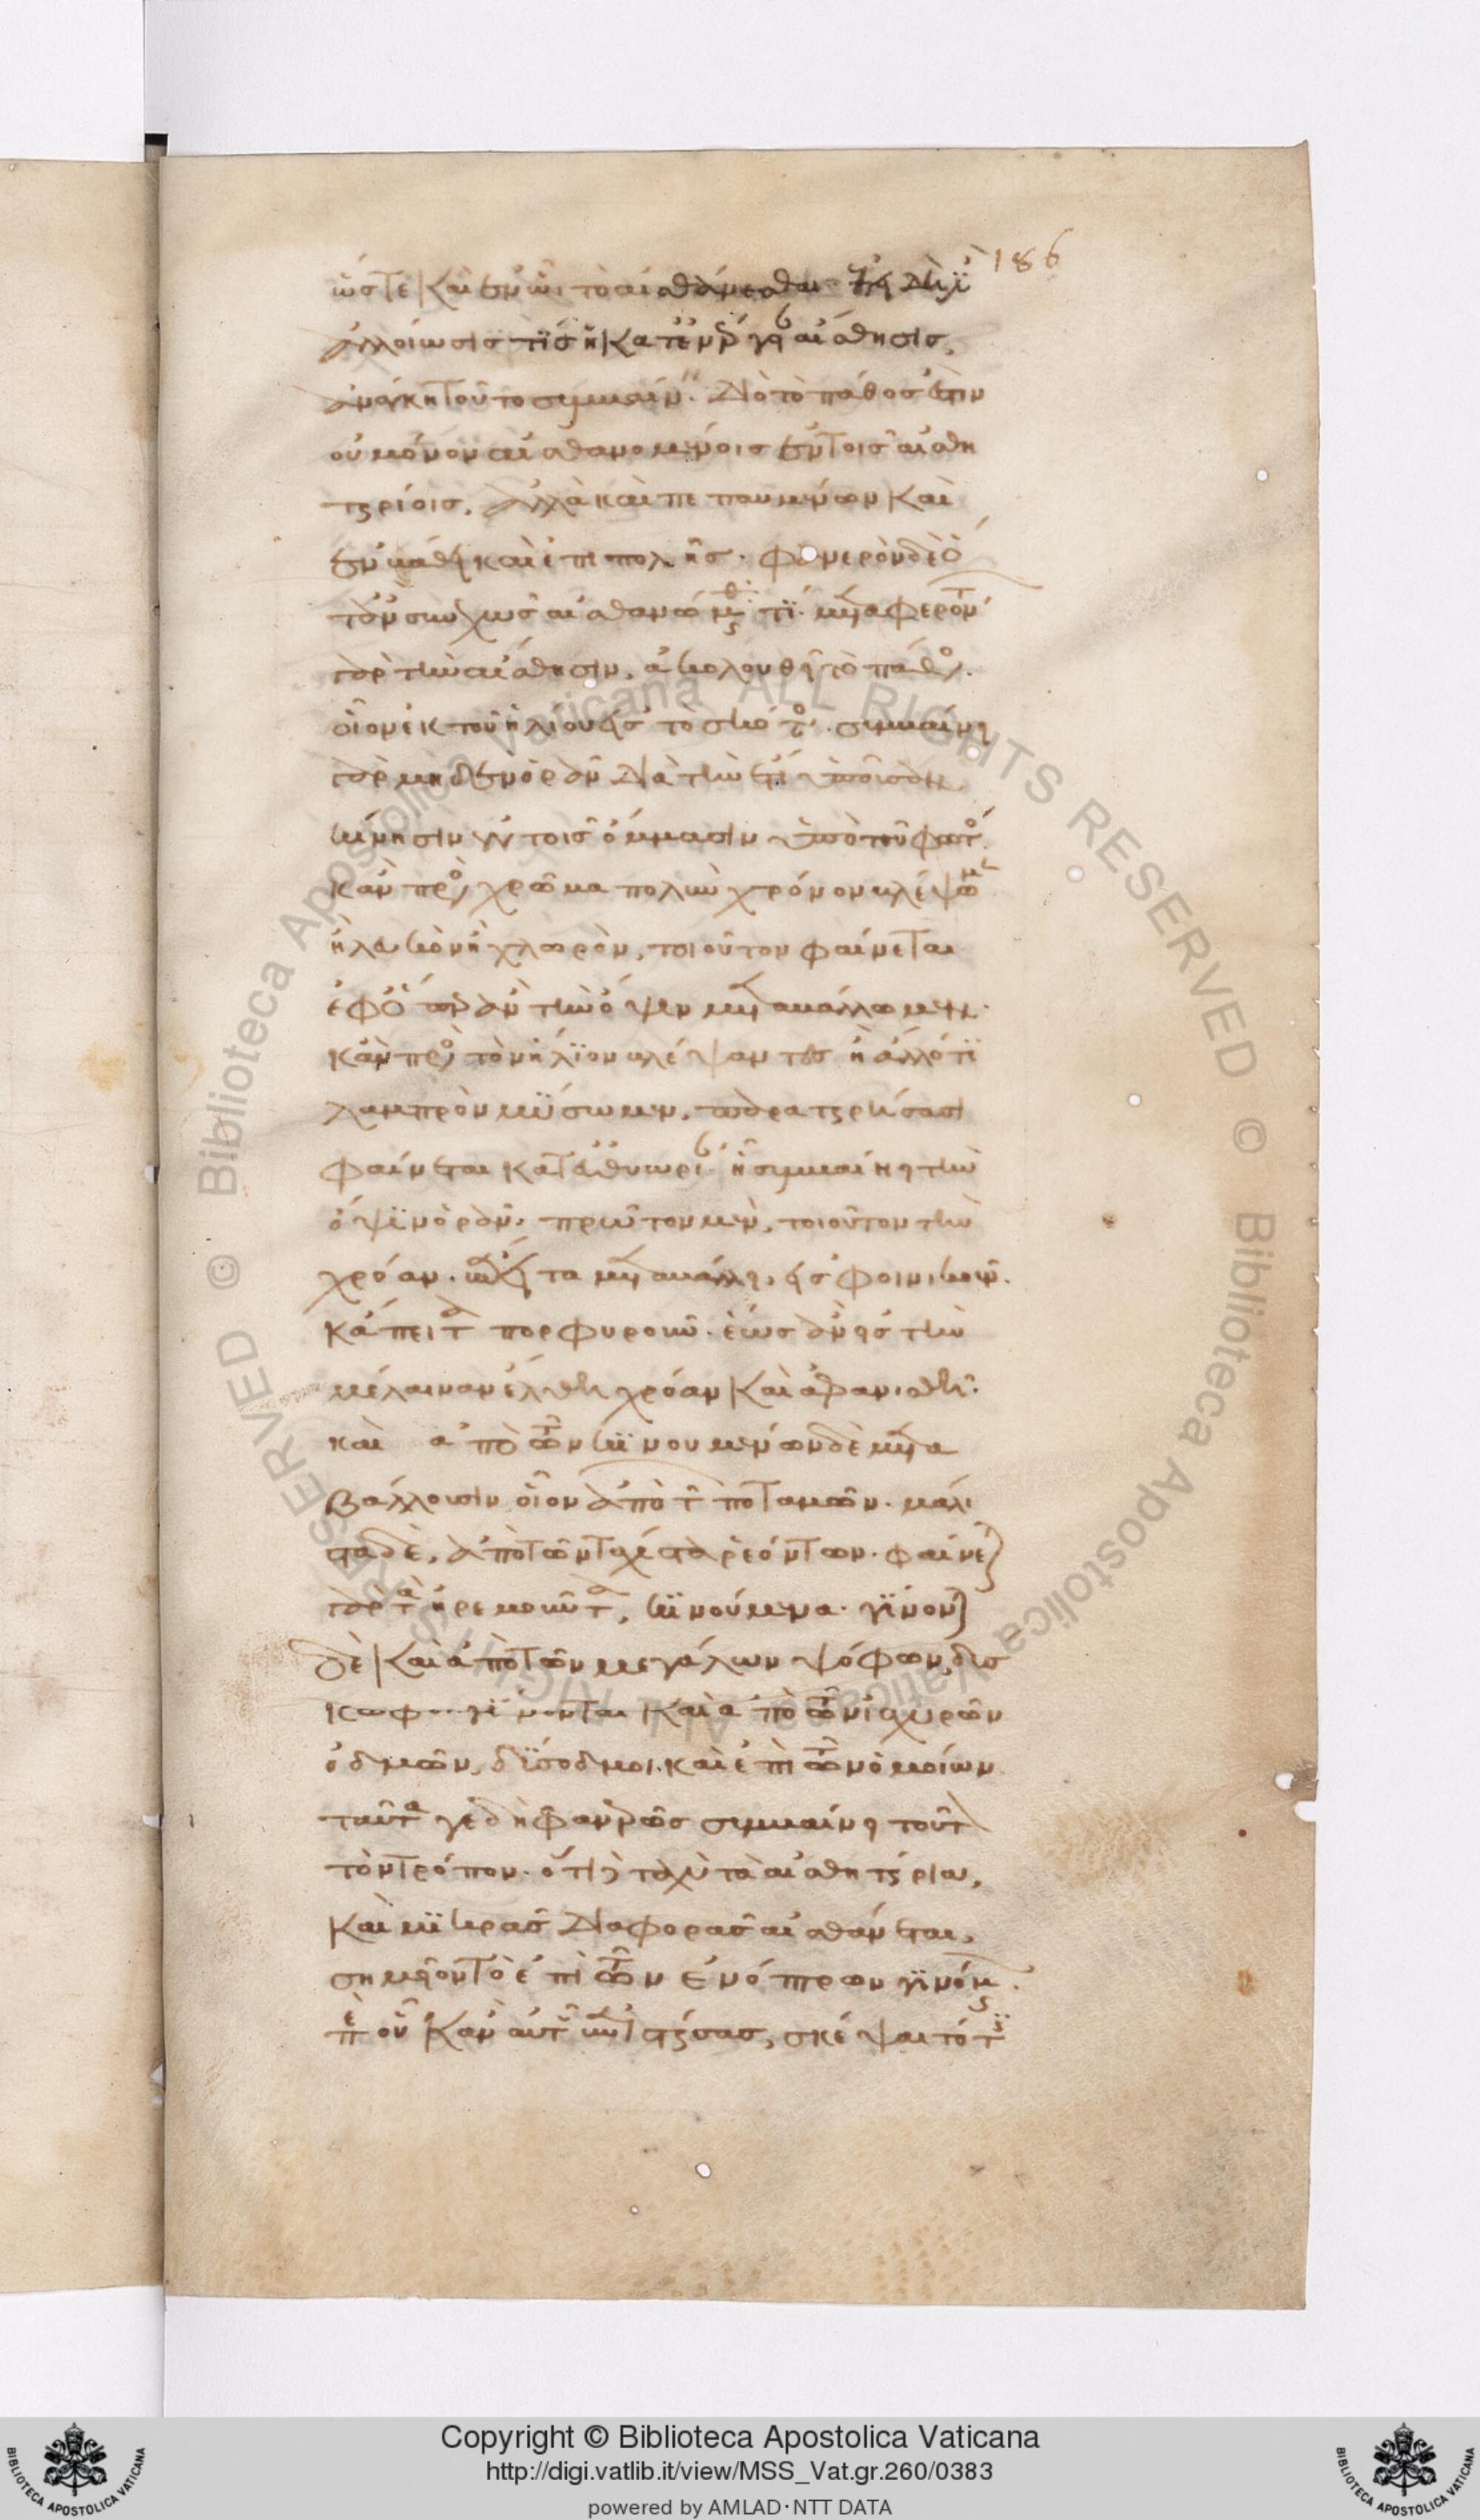 186
ὥστε καὶ ἐν ὧι τὸ αἰσθάνεσθαι ἐπεὶ δ' ἐστὶ
ἀλλοίωσίς τις ἡ κατ' ἐνέργειαν αἴσθησις,
ἀνάγκη τοῦτο συμβαίνειν. διὸ τὸ πάθος ἐστὶν
οὐ μόνον αἰσθανομένοις ἐν τοῖς αἰσθη
τηρίοις, ἀλλὰ καὶ πεπαυμένων καὶ
ἐν βάθει καὶ ἐπιπολῆς. φανερὸν δὲ ὅ
ταν συνεχῶς αἰσθανώμεθά τι. μεταφερόντων
γὰρ τὴν αἴσθησιν, ἀκολουθεῖ τὸ πάθος.
οἷον ἐκ τοῦ ἡλίου εἰς τὸ σκότος. συμβαίνει
γὰρ μηδὲν ὁρᾶν διὰ τὴν ἔτι ὑποῦσαν
κίνησιν ἐν τοῖς ὄμμασιν ὑπὸ τοῦ φωτός.
κἂν πρὸς χρῶμα πολὺν χρόνον βλέψωμεν
ἢ λευκὸν ἢ χλωρὸν, τοιοῦτον φαίνεται
ἐφ' ὅπερ ἂν τὴν ὄψιν μεταβάλλωμεν.
κἂν πρὸς τὸν ἥλιον βλέψαντες ἢ ἄλλό τι
λαμπρὸν μύσωμεν, παρατηρήσασι
φαίνεται κατ' εὐθυωρίαν. ἧι συμβαίνει τὴν
ὄψιν ὁρᾶν. πρῶτον μὲν, τοιοῦτον τὴν
χρόαν. εἶτα μεταβάλλει, εἰς φοινικοῦν.
κἄπειτα πορφυροῦν. ἕως ἂν εἰς τὴν
μέλαιναν ἔλθη χρόαν καὶ ἀφανισθῆ.
καὶ ἀπὸ τῶν κινουμένων δὲ μετα
βάλλουσιν οἷον ἀπὸ τῶν ποταμῶν. μάλι
στα δὲ, ἀπὸ τῶν τάχιστα ῥεόντων. φαίνεται
γὰρ τὰ ἠρεμοῦντα, κινούμενα. γίνονται
δὲ καὶ ἀπὸ τῶν μεγάλων ψόφων, δύσ
κωφοι γίνονται καὶ ἀπὸ τῶν ἰσχυρῶν
ὀδμῶν, δύσοδμοι. καὶ ἐπὶ τῶν ὁμοίων
ταῦτά γε δὴ φανερῶς συμβαίνει τοῦτον
τὸν τρόπον. ὅτι δὲ ταχὺ τὰ αἰσθητήρια,
καὶ μικρᾶς διαφορᾶς αἰσθάνεται,
σημεῖον τὸ ἐπὶ τῶν ἐνόπτρων γινόμενον.
περὶ οὗ κἂν αὐτοῦ ἐπιστήσας, σκέψαιτό τις
Copyright © Biblioteca Apostolica Vaticana
http://digi.vatlib.it/view/MSS_Vat.gr.260/0383
powered by AMLAD·NTT DATA